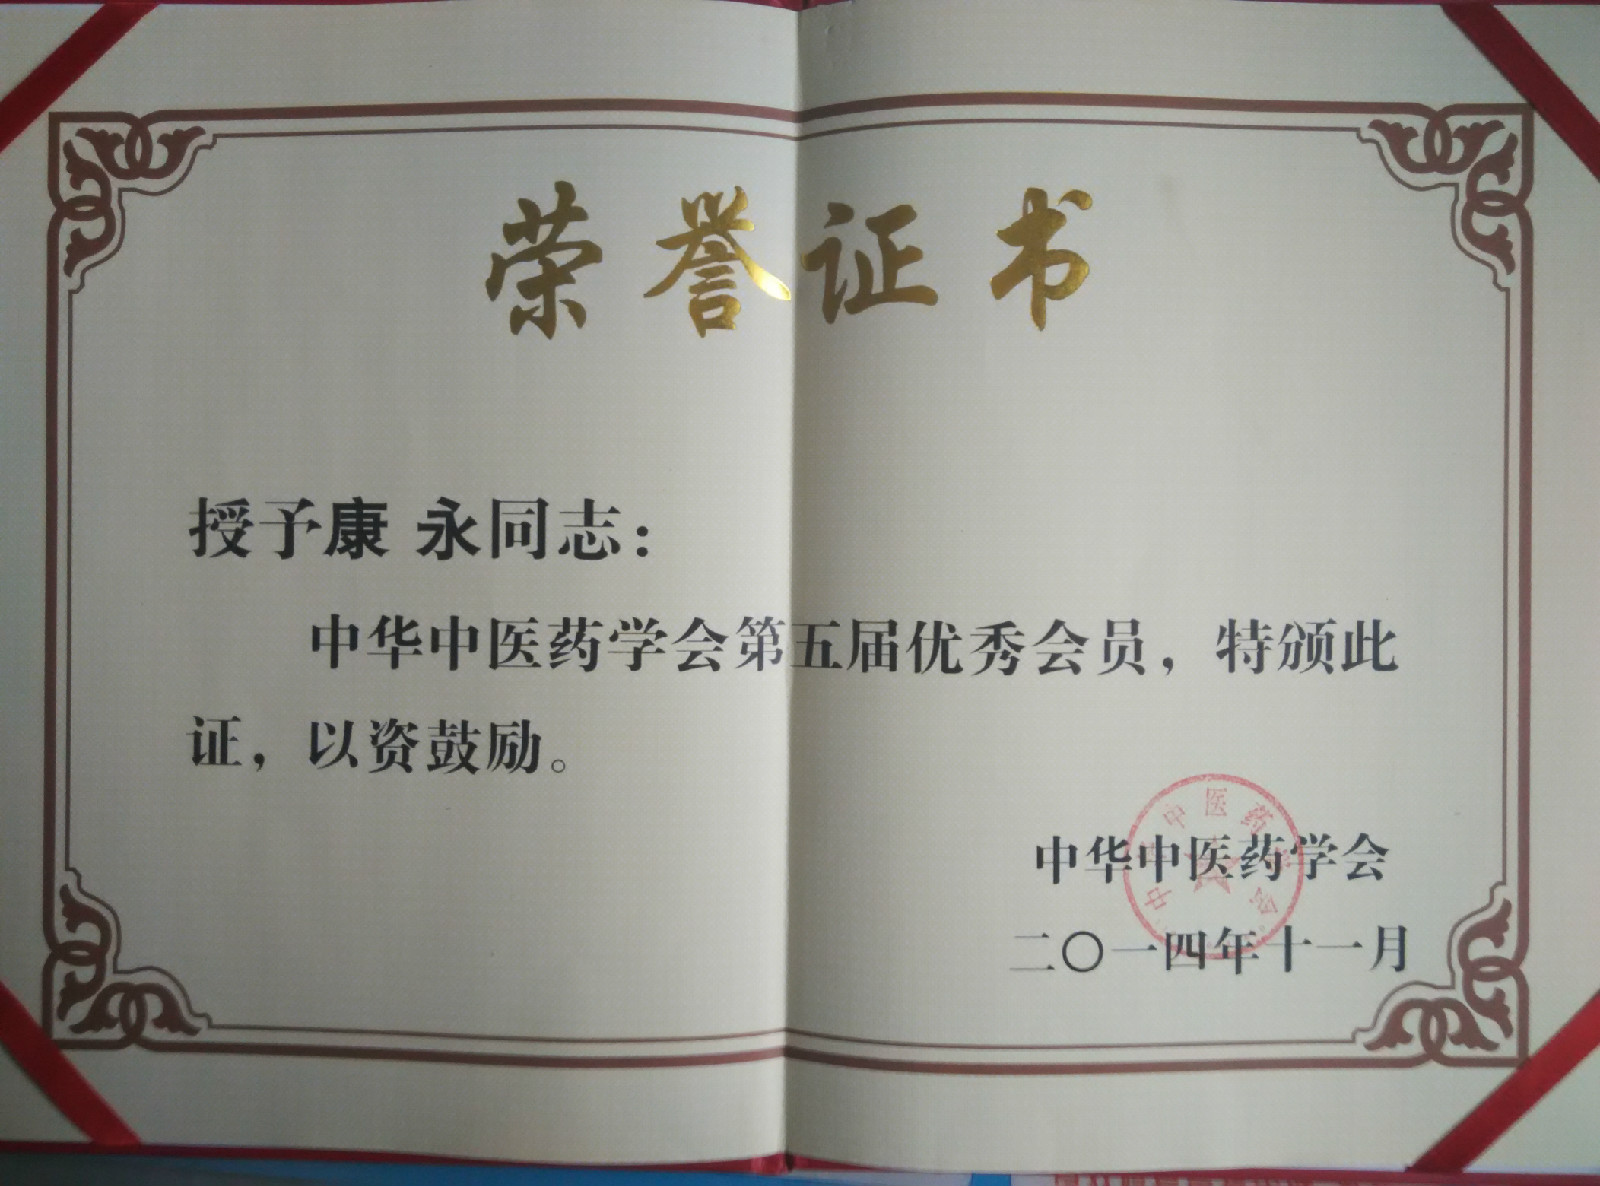 荣誉证书
授予康 永同志：
中华中医药学会第五届优秀会员，特颁此
证，以资鼓励。
中华中医药学会
二〇一四年十一月